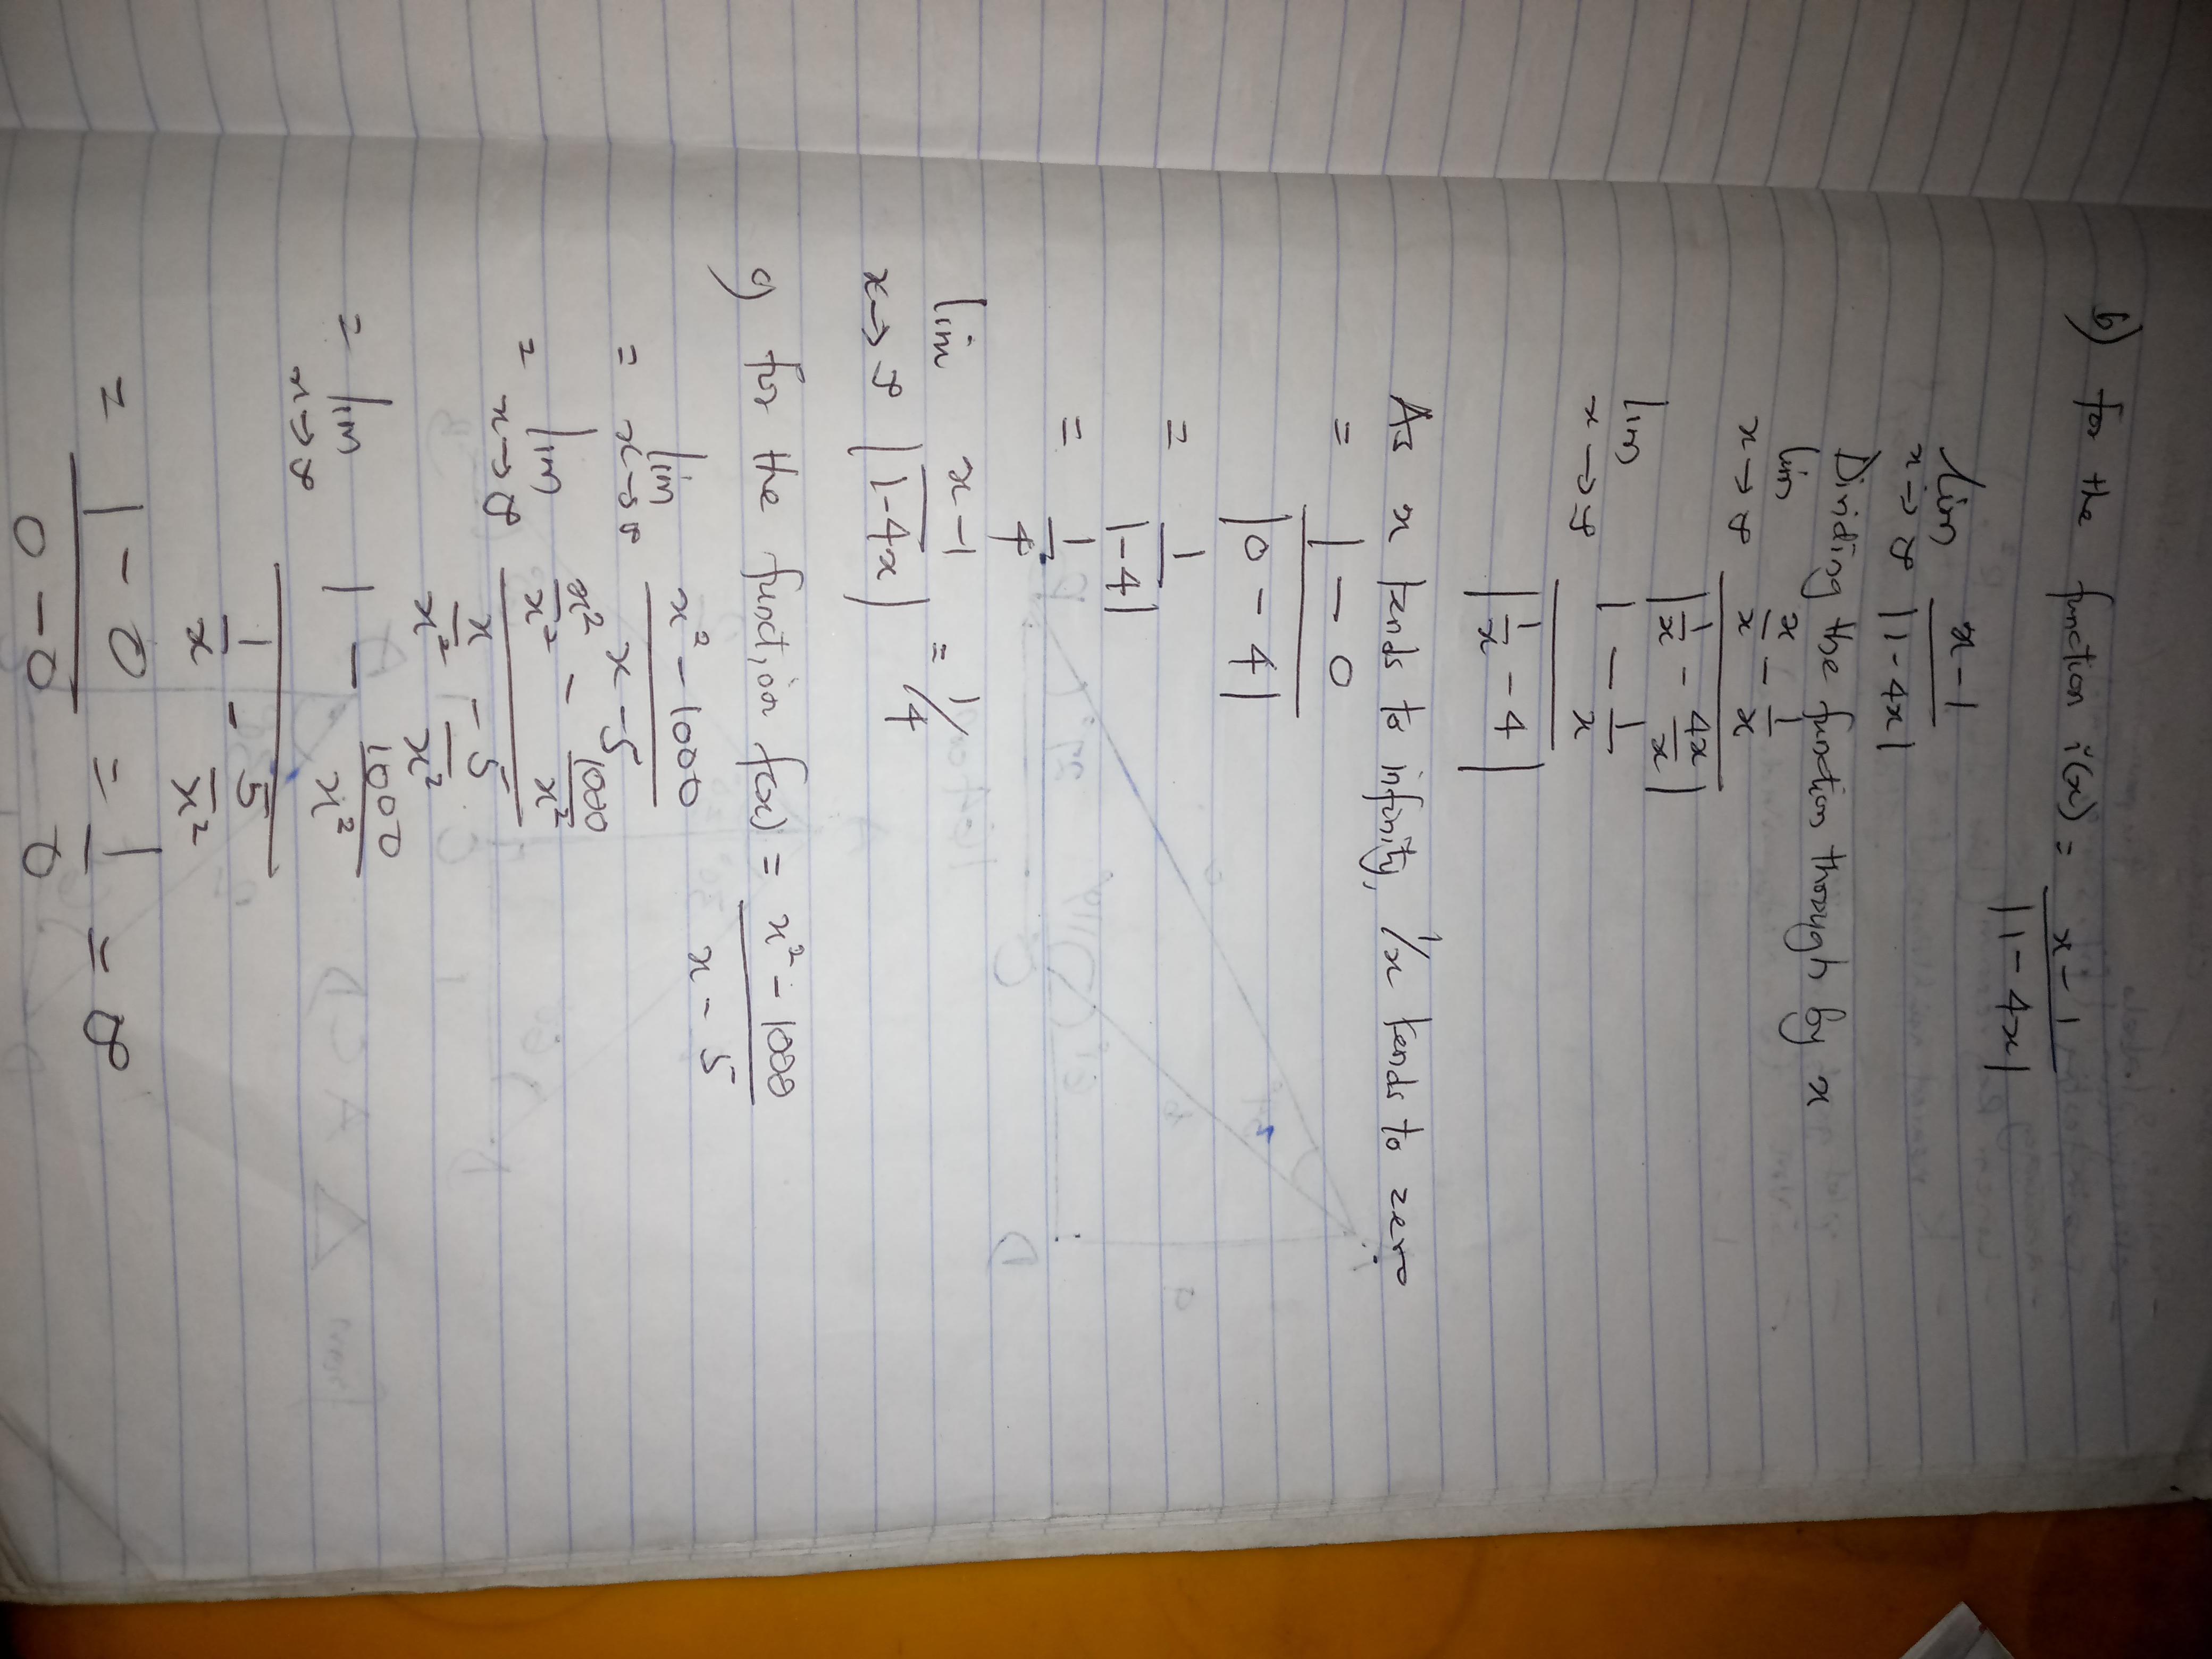 b) for the function i(x) = x - 1 / |1 - 4x|
lim x→∞ x - 1 / |1 - 4x|
Dividing the function through by x
lim x→∞ x/x - 1/x / |1/x - 4x/x|
lim x→∞ 1 - 1/x / |1/x - 4|
As x tends to infinity, 1/x tends to zero
= 1 - 0 / |0 - 4|
= 1 / |-4|
= 1/4
lim x→∞ x - 1 / |1 - 4x| = 1/4
c) for the function f(x) = x² - 1000 / x - 5
= lim x→∞ x² - 1000 / x - 5
= lim x→∞ x²/x² - 1000/x² / x/x² - 5/x²
= lim x→∞ 1 - 1000/x² / 1/x - 5/x²
= 1 - 0 / 0 - 0 = 1/0 = ∞